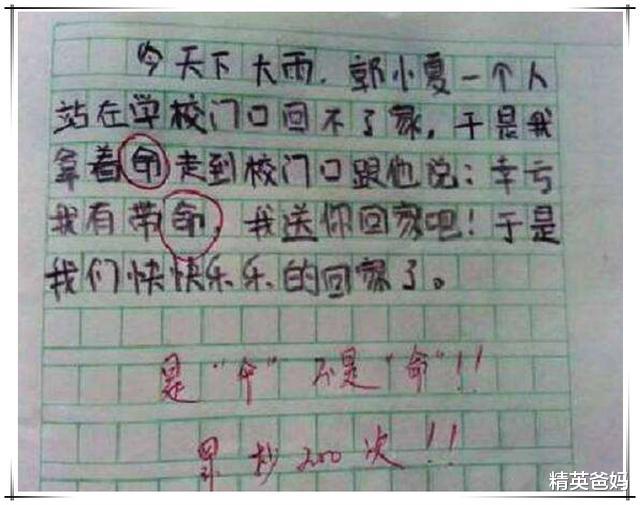 今天下大雨，郭小夏一个人
站在学校门口回不了家，于是我
拿着命走到校门口跟他说：幸亏
我有带命，我送你回家吧！于是
我们快快乐乐的回家了。
是“伞”不是“命”！！
罚抄200次！！
精英爸妈